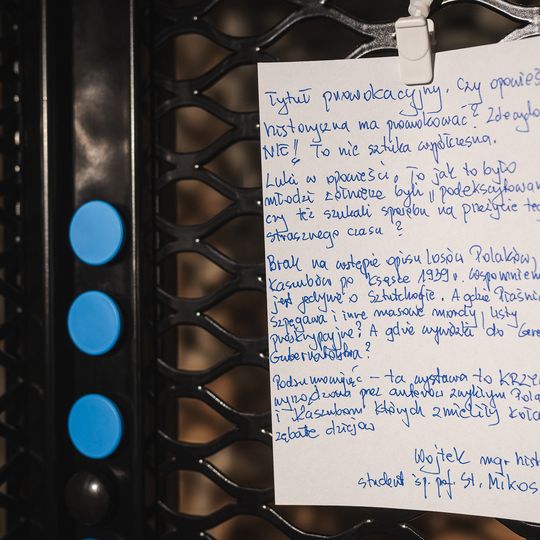 Tytuł prowokacyjny. Czy opowieś
historyczna ma prowokować? Zdecydo
NIE!! To nie sztuka współczesna.
Luki w opowieści. To jak to było
młodzi żołnierze byli „podekscytowan
czy też szukali sposobu na przeżycie teg
strasznego czasu?
Brak na wstępie opisu losów Polaków,
Kaszubów po klęsce 1939 r. Wspomnien
jest jedynie o Sztutthofie. A gdzie Piaśni
Szpęgawa i inne masowe mordy, listy
proskrypcyjne? A gdzie wywózki do Gene
Gubernatorstwa?
Podsumowując – ta wystawa to KRZY
wyrządzona przez autorów zwykłym Pola
i Kaszubom których zmieliły koła
zębate dziejów
Wojtek mgr hist
student śp. prof. St. Mikos